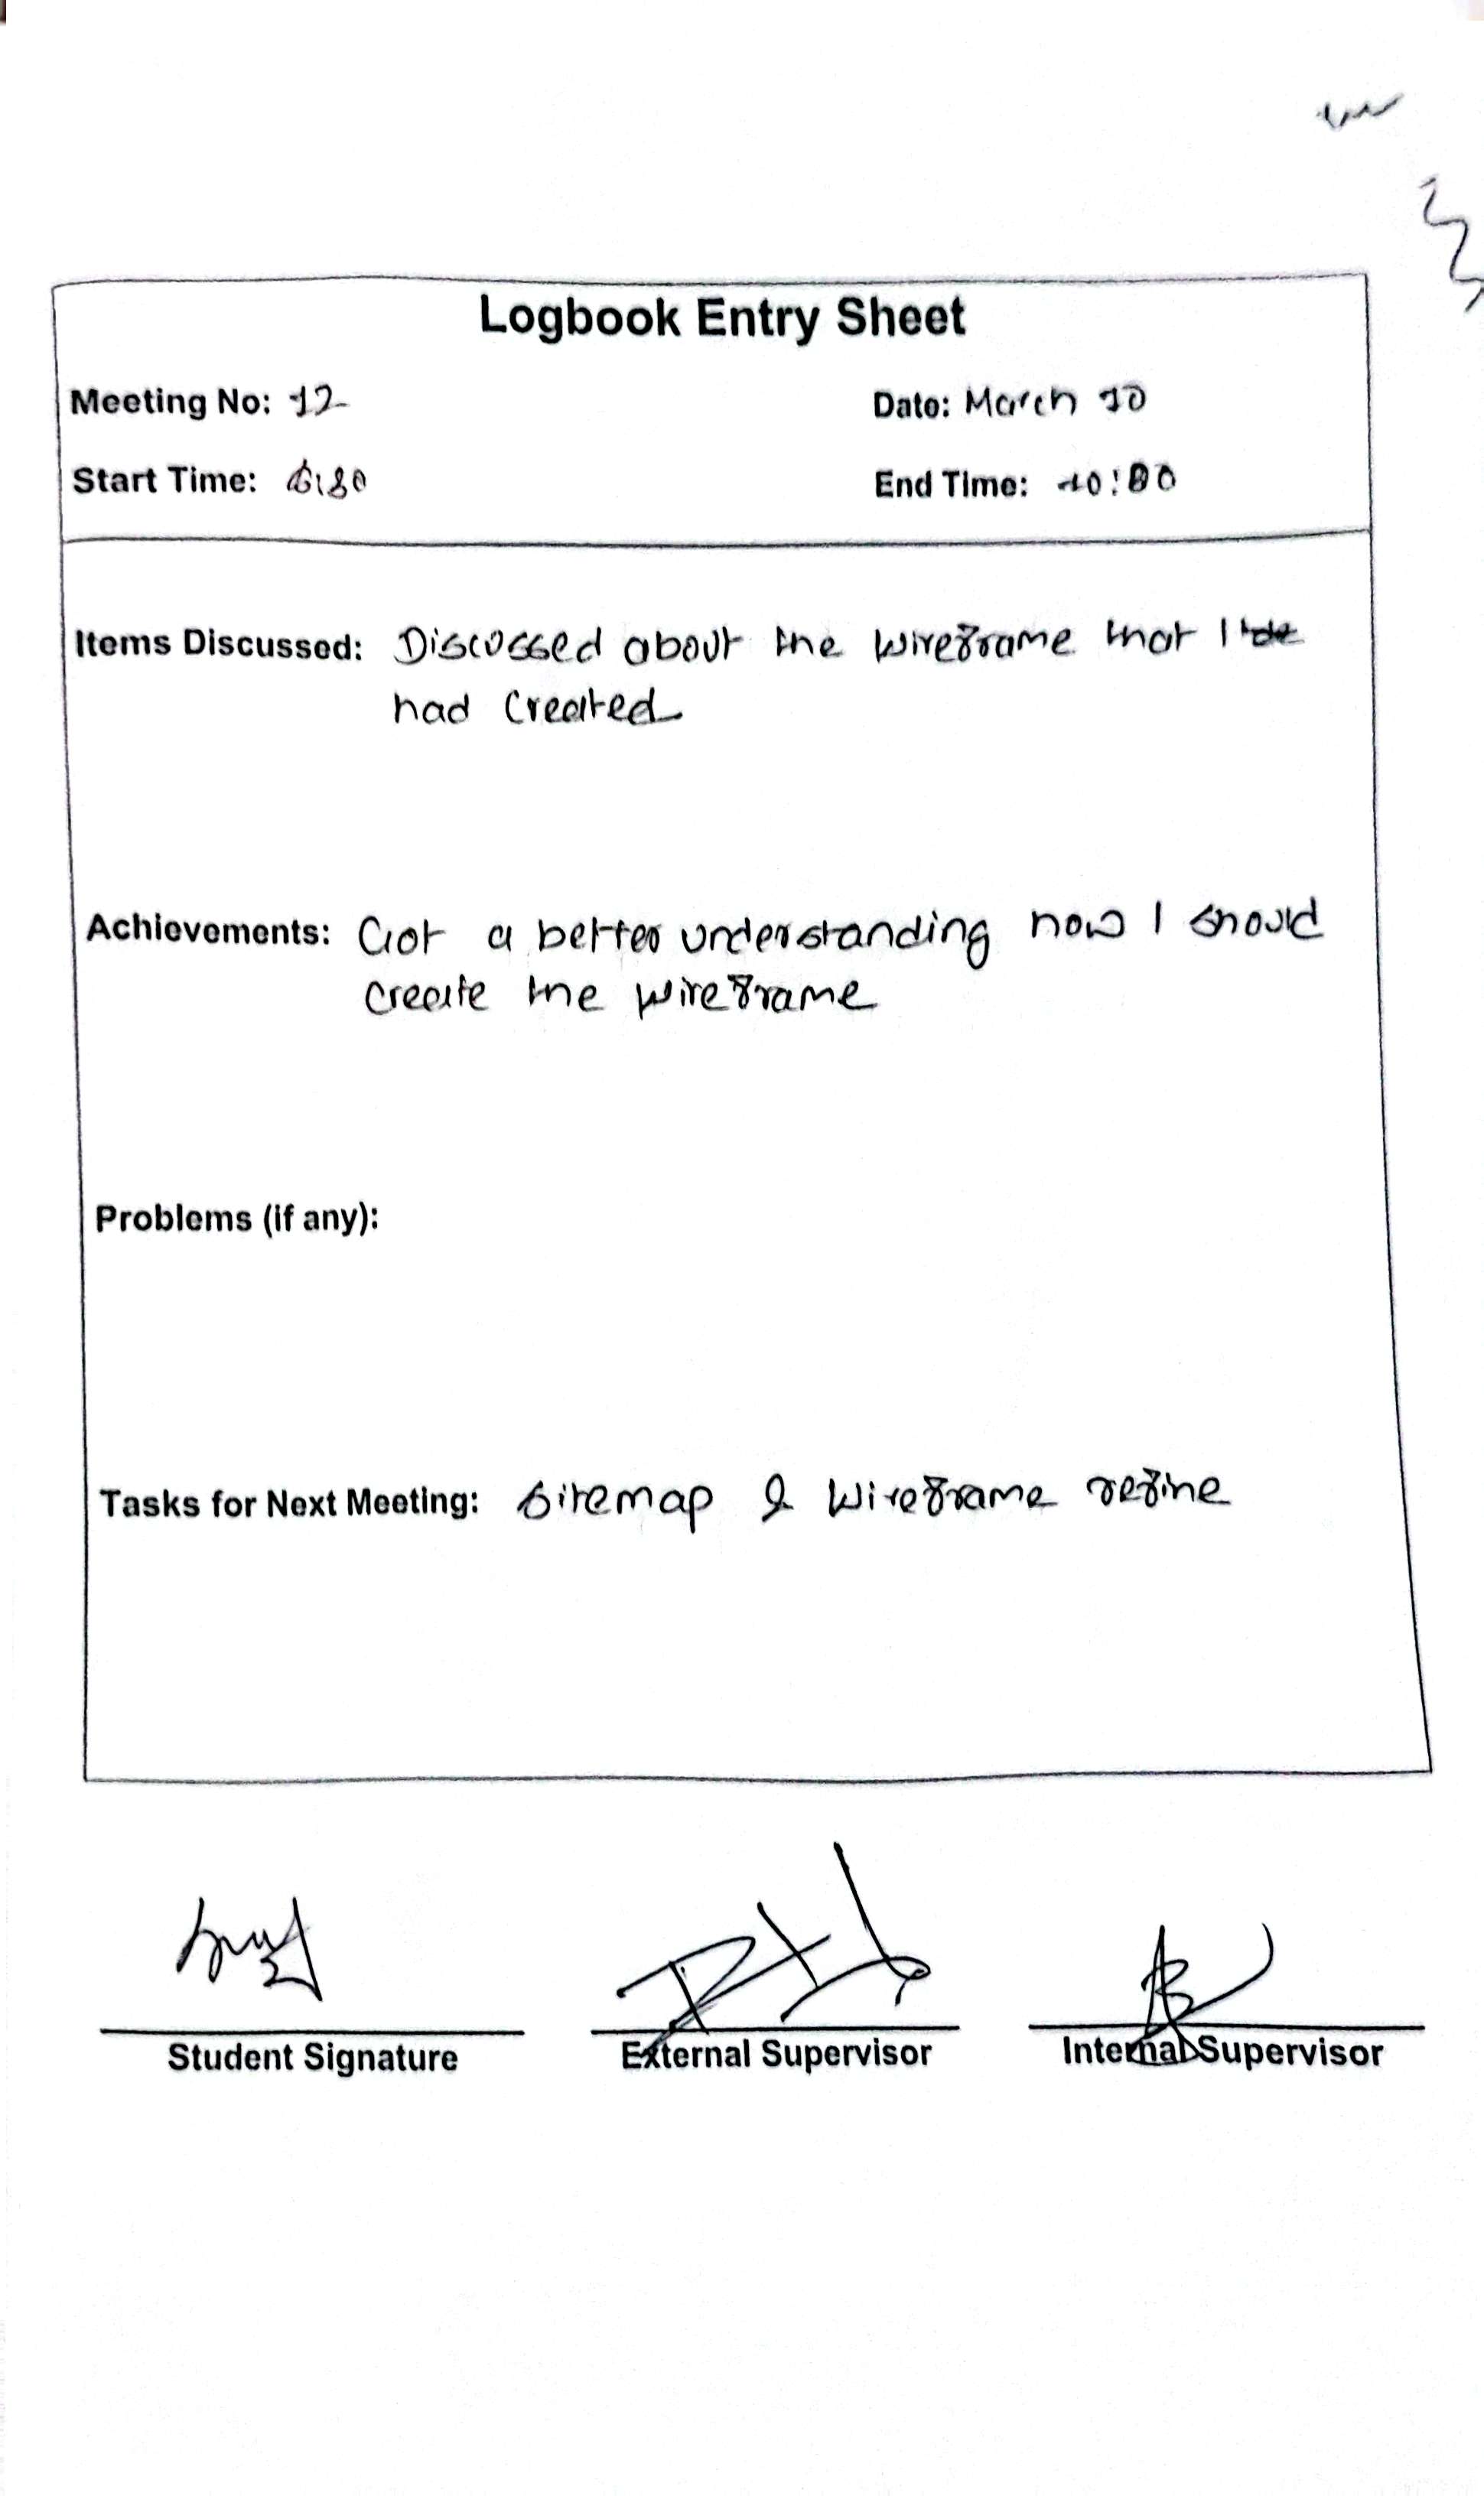 Logbook Entry Sheet
Meeting No: 12 Date: March 10
Start Time: End Time: 10:00
Items Discussed: Discussed about the wireframe that I
had created
Achievements: Got a better understanding how I should
create the wireframe
Problems (if any):
Tasks for Next Meeting: Sitemap & Wireframe refine
Student Signature External Supervisor Internal Supervisor